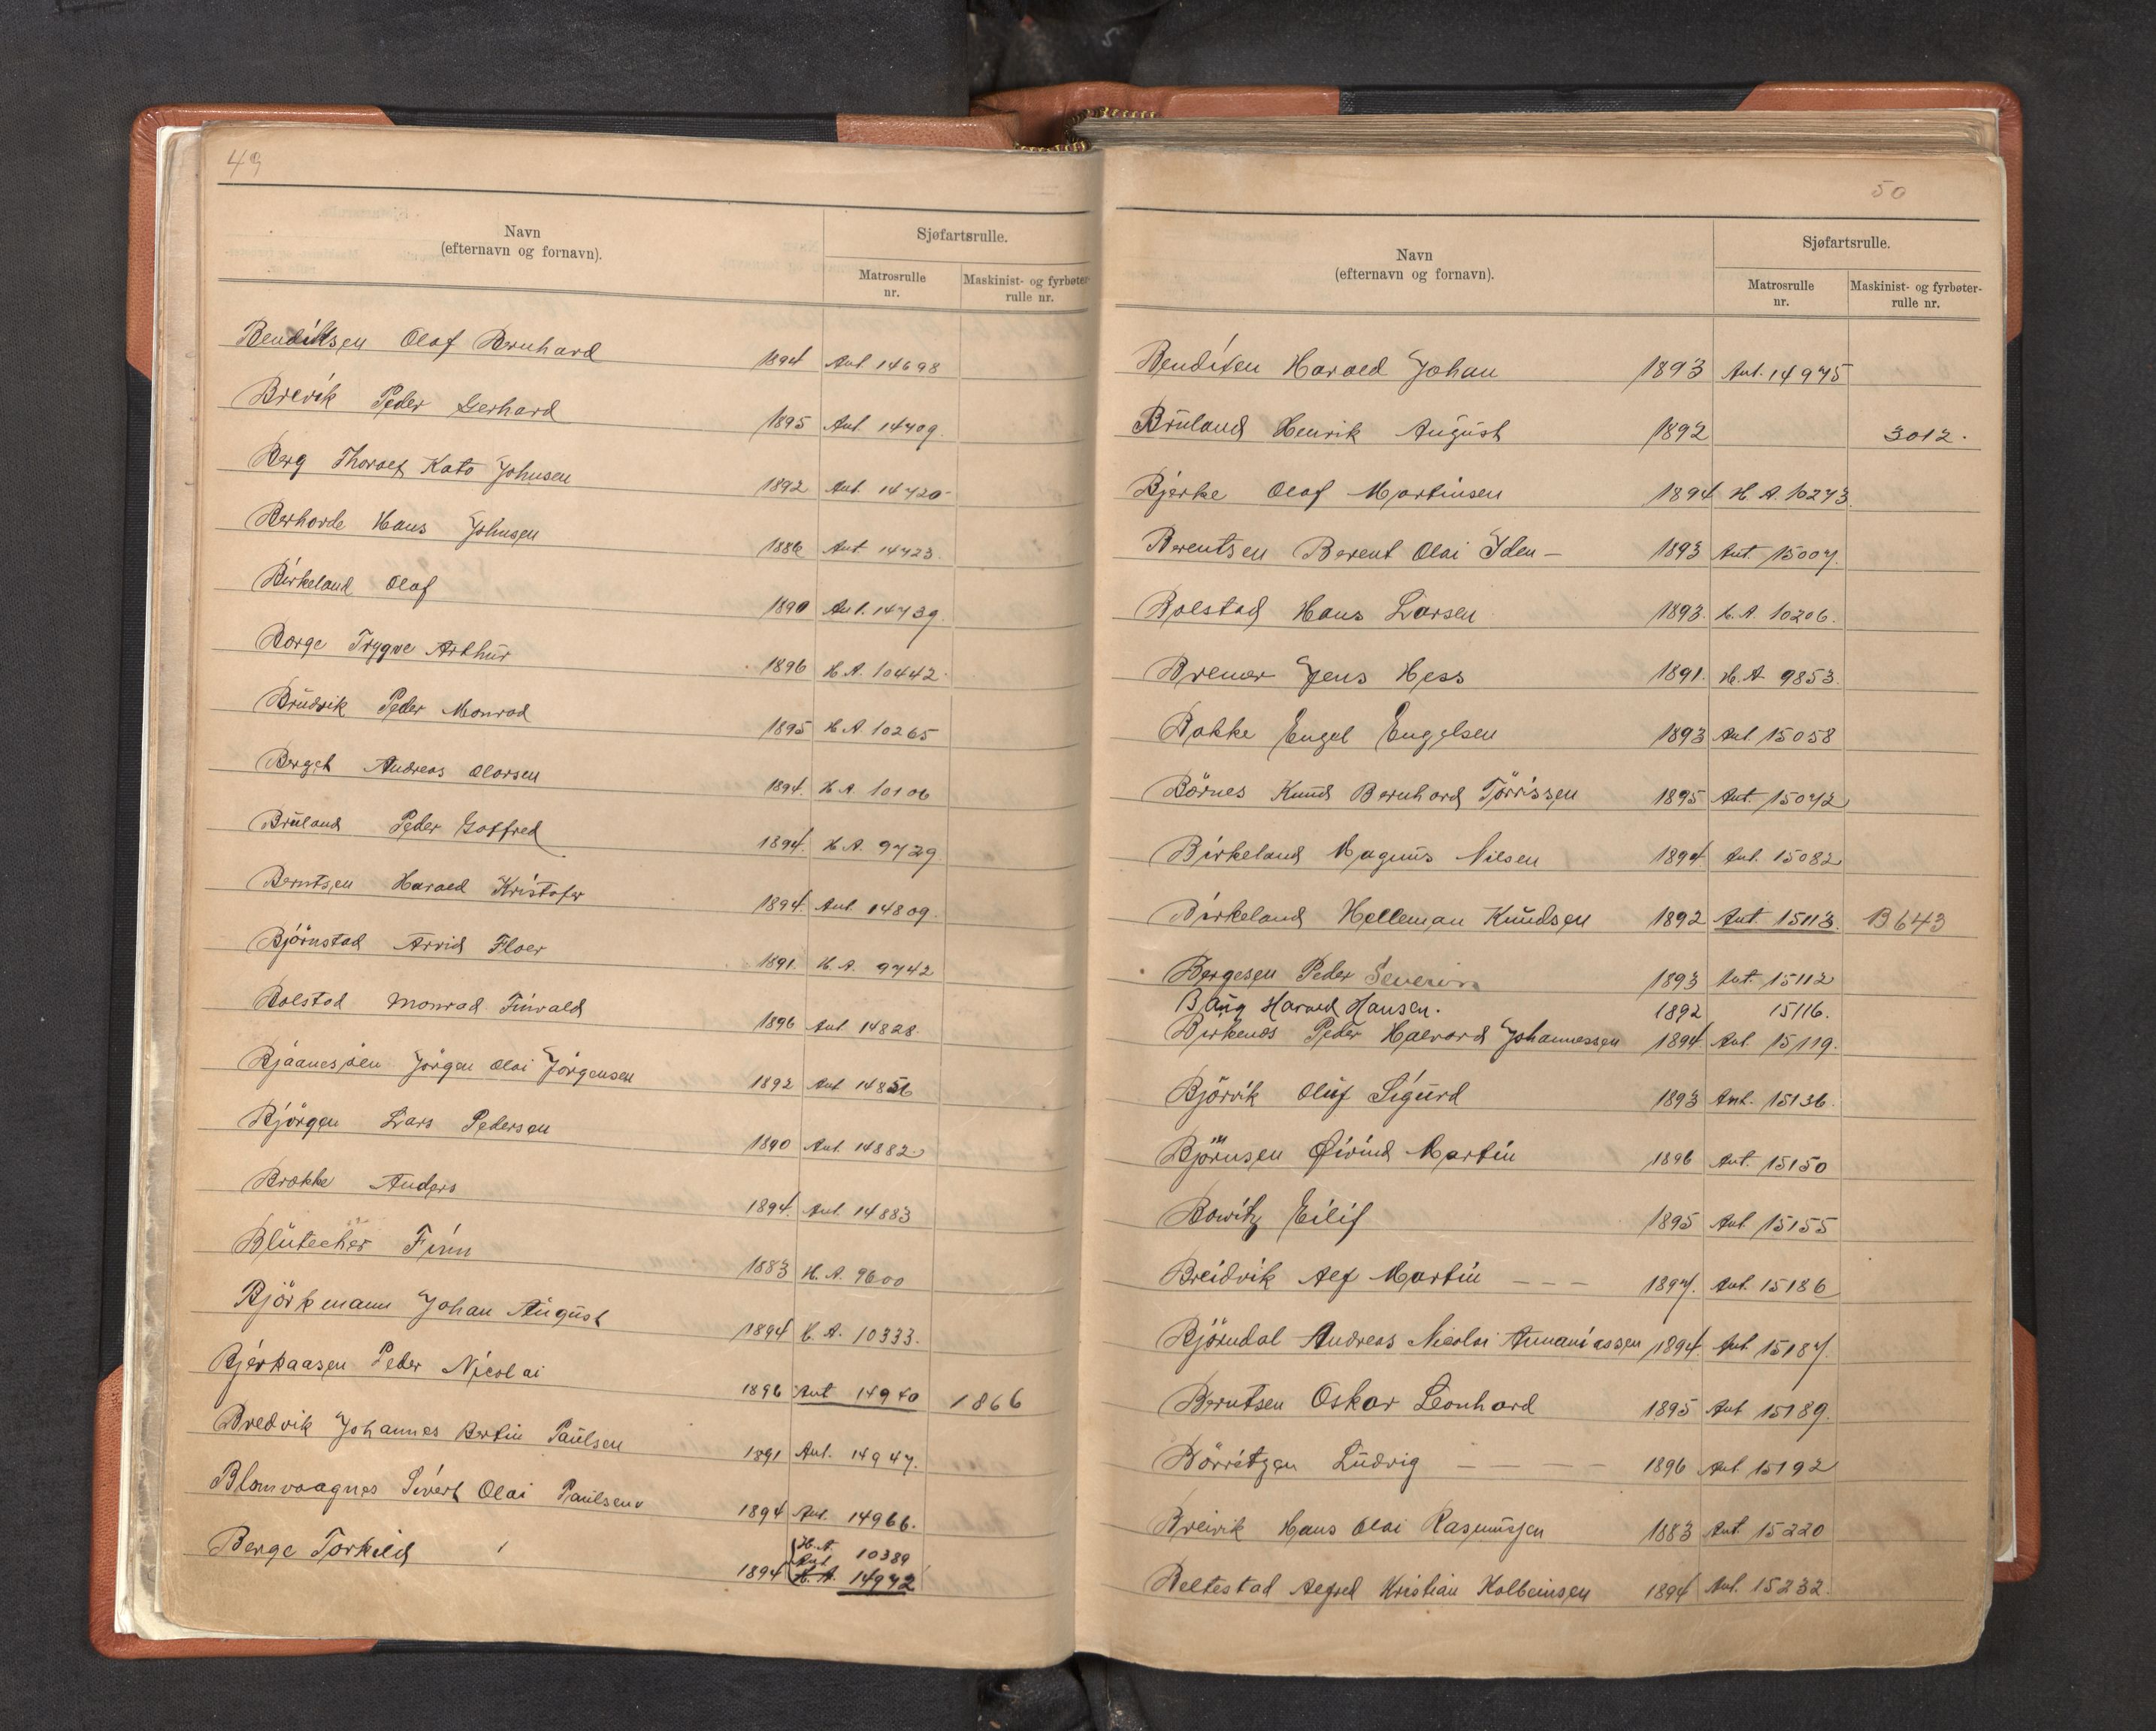 49
Navn
(efternavn og fornavn).
Sjøfartsrulle.
Matrosrulle
nr.
Maskinist- og fyrbøter-
rulle nr.
Bendiksen Olaf Bernhard 1894 Ant 14698
Brevik Peder Gerhard 1895 Ant. 14709.
Berg Thorolf Kato Johnsen 1892 Ant. 14720
Berhovde Hans Johnsen 1886 Ant 14723.
Birkeland Olaf 1890 Ant. 14739.
Borge Trygve Arthur 1896 H.A. 10442.
Brudvik Peder Monrad 1895 H.A. 10265
Berget Andreas Olavsen 1894. H.A. 10106
Bruland Peder Gotfred 1894. H.A. 9729.
Berntsen Harald Kristofer 1894. Ant. 14809.
Björnstad Arvid Floer 1891. H.A. 9742
Bolstad Monrad Finvald 1896 Ant. 14828.
Bjaanesöen Jörgen Olai Jörgensen 1892 Ant 14856
Björgen Lars Pedersen 1890 Ant. 14882.
Brække Anders 1894. Ant. 14883
Blütecher Finn 1883 H.A. 9600
Björkmann Johan August 1894 H.A. 10333.
Bjerkaasen Peder Nicolai 1896 Ant 14940 1866
Bredvik Johannes Bertin Paulsen 1891 Ant. 14947.
Blomvaagnes Sivert Olai Paulsen 1894 Ant. 14966.
Berge Torkild 1894 H.A. 10389
Ant. H.A. 14972
50
Navn
(efternavn og fornavn).
Sjøfartsrulle.
Matrosrulle
nr.
Maskinist- og fyrbøter-
rulle nr.
Bendixen Harald Johan 1893 Ant. 14975
Bruland Henrik August 1892 3012.
Bjerke Olaf Martinsen 1894 H.A. 10273.
Berentsen Berent Olai Iden – 1893 Ant. 15007.
Bolstad Hans Larsen 1893. H.A. 10206.
Bremer Jens Hess 1891. H.A 9853.
Bakke Engel Engelsen 1893 Ant. 15058
Börnes Knud Bernhard Törrissen 1895 Ant. 15072
Birkeland Magnus Nilsen 1894 Ant. 15082
Birkeland Helleman Knudsen 1892 Ant. 15113. B643
Bergesen Peder Severin 1893 Ant. 15112
Bang Harald Hansen. 1892 15116.
Birkenes Peder Halvard Johannessen 1894 Ant. 15119.
Björvik Oluf Sigurd 1893 Ant. 15136.
Björnsen Øivind Martin 1896 Ant. 15150
Bowitz Eilif 1895 Ant 15155
Breidvik Alf Martin – – – 1897. Ant. 15186
Björndal Andreas Nicolai Annaniassen 1894 Ant. 15187.
Berntsen Oskar Leonhard 1895 Ant 15189.
Börretzen Ludvig – – – – 1896 Ant. 15192
Breivik Hans Olai Rasmussen 1883 Ant. 15220
Beltestad Alfred Kristian Kolbeinsen 1894 Ant. 15232.